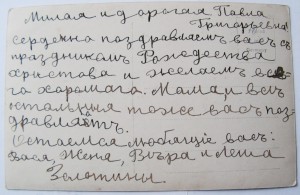 Милая и дорогая Павла
Григорьевна!
сердечно поздравляем васъ съ
праздникомъ Рождества
Христова и желаемъ всего
хорошаго. Мама и всѣ
остальныя тоже васъ поз-
дравляютъ.
Остаемся любящіе васъ:
Вася, Женя, Вѣра и Леша
Золотины